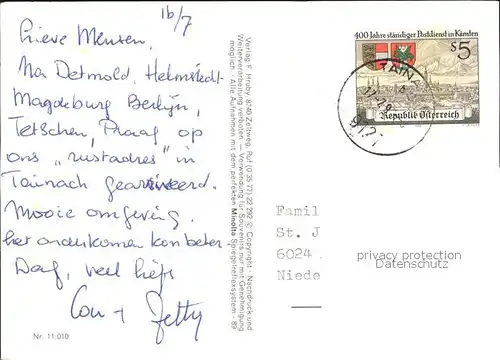 16/7
Lieve Mensen,
Na Detmold, Helmstedt
Magdeburg Berlijn,
Tetschen, Praag op
ons „rustadres" in
Tainach gearriveerd.
Mooie omgeving.
het onderkomen kon beter.
Daag, veel liefs
Con + Jetty
Nr. 11.010
Verlag F. Hruby, 8740 Zeltweg, Ruf (0 35 77) 22 292 © Copyright - Nachdruck und
Weiterverarbeitung verboten. — Verwendung für Souvenirs nur mit Genehmigung
möglich. - Alle Aufnahmen mit dem perfekten Minolta Spiegelreflexsystem - 89
400 Jahre ständiger Postdienst in Kärnten
S 5
Republik Österreich
TAINA
9121
Famil
St. J
6024
Niede
privacy protection
Datenschutz